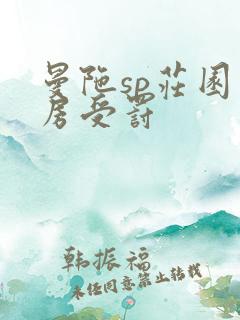 曼陀sp莊園
房受罰
韩振福
未经同意禁止转载